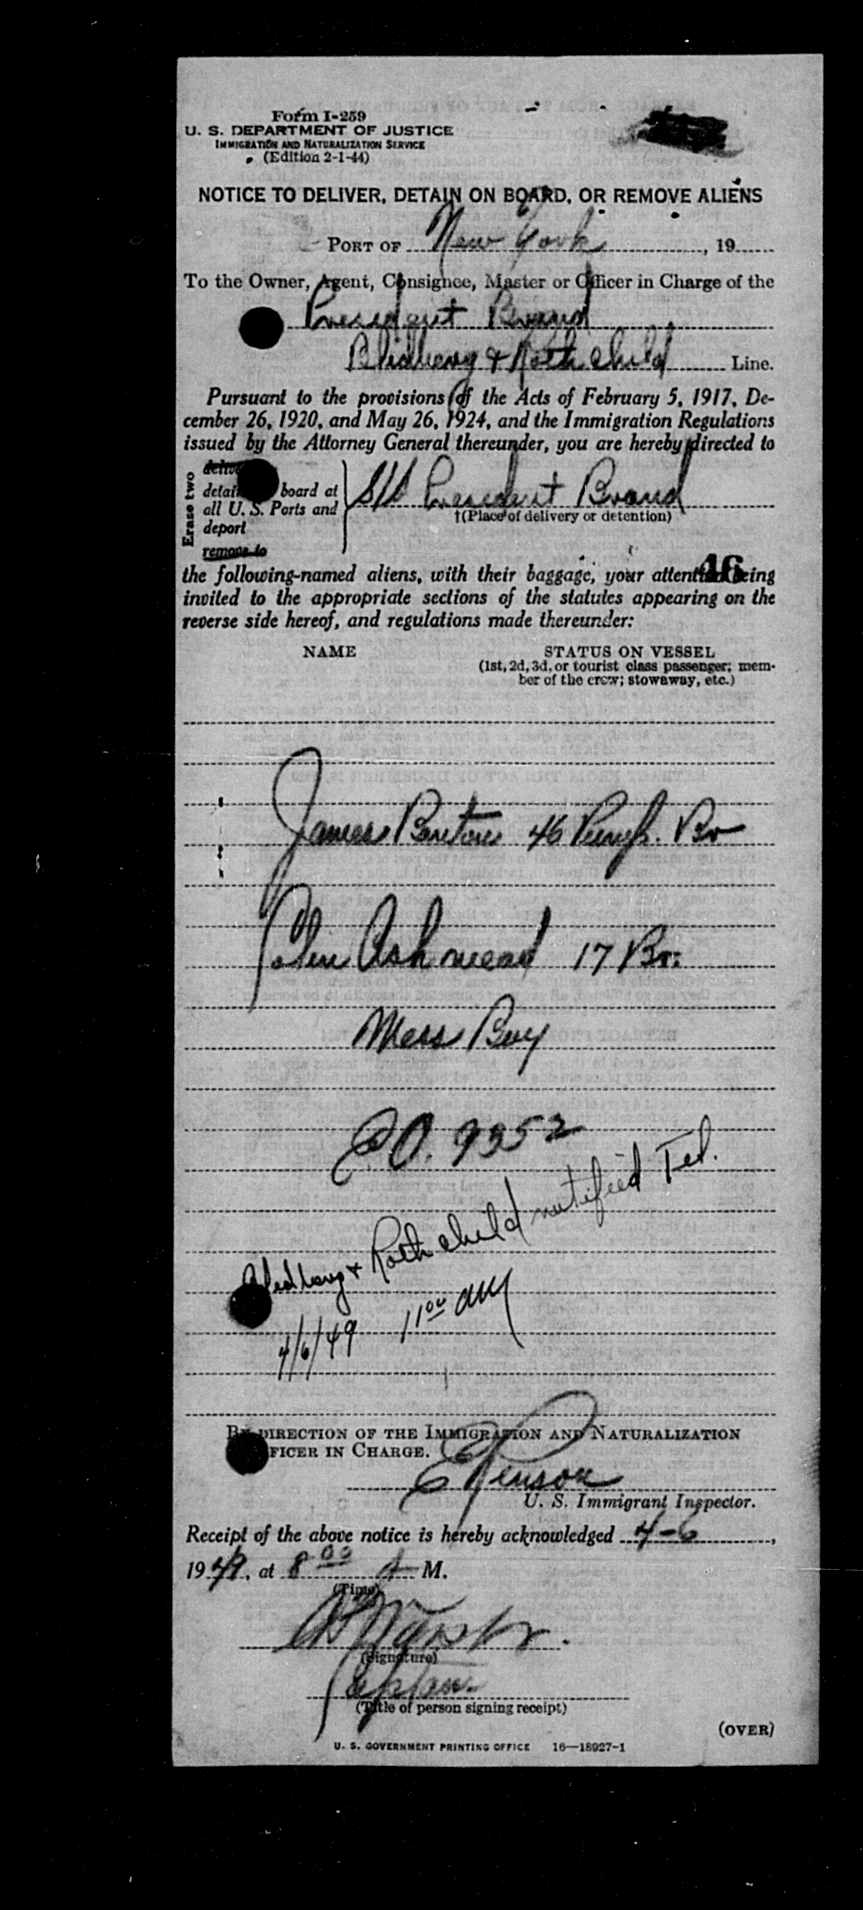 Form I-259
U. S. DEPARTMENT OF JUSTICE
IMMIGRATION AND NATURALIZATION SERVICE
(Edition 2-1-44)
NOTICE TO DELIVER, DETAIN ON BOARD, OR REMOVE ALIENS
PORT OF New York, 19
To the Owner, Agent, Consignee, Master or Officer in Charge of the
President Brand
Blidberg & Rothchild Line.
Pursuant to the provisions of the Acts of February 5, 1917, De-
cember 26, 1920, and May 26, 1924, and the Immigration Regulations
issued by the Attorney General thereunder, you are hereby directed to
Erase two
deliver
detain board at
all U. S. Ports and
deport
remove to
S/S President Brand
†(Place of delivery or detention)
46
the following-named aliens, with their baggage, your attention being
invited to the appropriate sections of the statutes appearing on the
reverse side hereof, and regulations made thereunder:
NAME STATUS ON VESSEL
(1st, 2d, 3d, or tourist class passenger; mem-
ber of the crew; stowaway, etc.)
James 46 Br
Ashmead 17 Br.
Mess Boy
E.O. 9352
Blidberg & Rothchild notified Tel.
4/6/49 11 00 AM
BY DIRECTION OF THE IMMIGRATION AND NATURALIZATION
OFFICER IN CHARGE.
U. S. Immigrant Inspector.
Receipt of the above notice is hereby acknowledged 4-6,
1949, at 8 00 A M.
(Time)
(Signature)
Captain
(Title of person signing receipt)
(OVER)
U. S. GOVERNMENT PRINTING OFFICE 16—18927-1